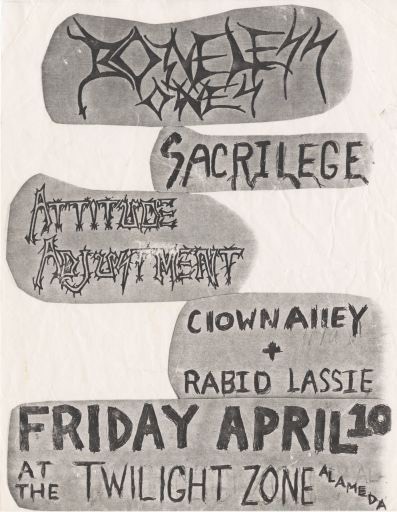 BONELESS
ONES
SACRILEGE
ATTITUDE
ADJUSTMENT
CLOWN ALLEY
+
RABID LASSIE
FRIDAY APRIL 10
AT THE TWILIGHT ZONE ALAMEDA